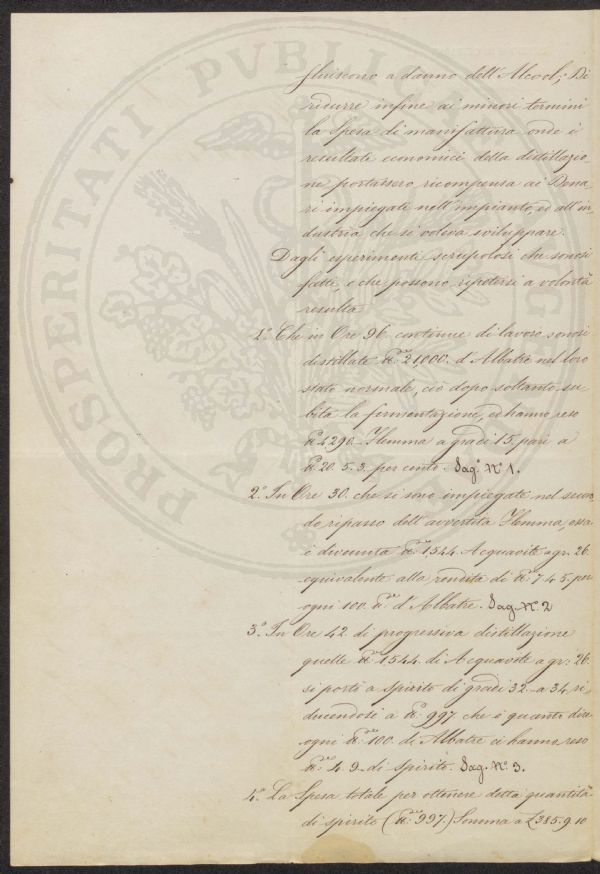 fluiscono a danno dell'Alcool; Di
ridurre infine ai minori termini
la spesa di manifattura onde i
resultati economici della distillazio-
ne portassero ricompensa ai Dena-
ri impiegati nell'impianto, ed all'in-
dustria che si voleva sviluppare.
Dagli esperimenti scrupolosi che sonosi
fatti, e che possono ripetersi a volontà
resulta
1.° Che in Ore 96 continue di lavoro sonosi
distillate 21,000. d'Albatre nel loro
stato normale, ciò dopo soltanto su-
bita la fermentazione, ed hanno reso
4290. Flemma a gradi 15, pari a
20. 5. 3. per cento. Sag.° N.° 1.
2.° In Ore 30. che si sono impiegate nel secon-
do ripasso dell'avvertita Flemma, essa
è divenuta 1544. Acquavite a gr: 26.
equivalente alla rendita di 7 4 5. per
ogni 100. d'Albatre. Sag. N.° 2
3.° In Ore 42. di progressiva distillazione
quelle 1544. di Acquavite a gr: 26.
si portò a spirito di gradi 32. a 34, ri-
ducendosi a 997. che è quanto dire
ogni 100. di Albatre ci hanno reso
4. 9. di spirito. Sag. N.° 3.
4.° La Spesa totale per ottenere detta quantità
di spirito (997.) Somma a £385. 9. 10
PROSPERITATI PVBLICAE